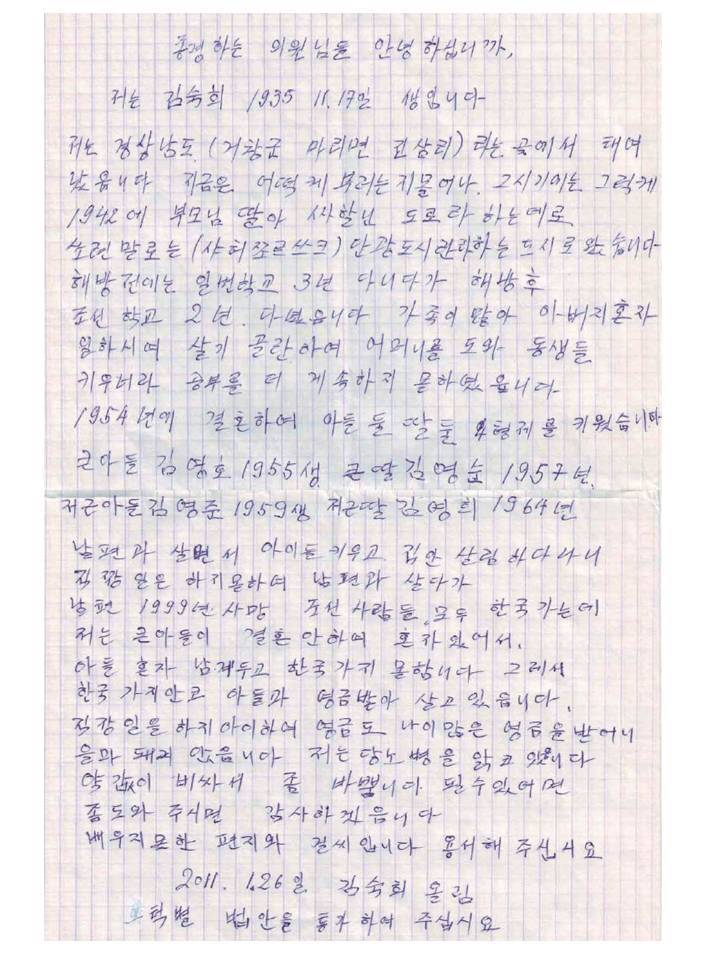 존경하는 의원님들 안녕하십니까,
저는 김숙희 1935 11.17일 생입니다
저는 경상남도 (거창군 마리면 고상리) 라는 곳에서 태여
났읍니다 지금은 어떡게 부리는지몰어나. 그시기에는 그럭케
1942에 부모님 딸아 사할닌 도로라 하는데로
쏘련말로는 (샤히죠르쓰크) 단광도시란라하는 드시로 왔습니다
해방전에는 일번학교 3년 다니다가 해방후
조선 학교 2년. 다녔습니다 가족이 많아 아버지혼자
일하시여 살기 골란하여 어머니를 도와 동생들
키우너라 공부를 더 게속하지 못하였읍니다
1954년에 결혼하여 아들 둘 딸 둘 4형제를 키웠습니다
큰아들 김영호 1955생 큰딸 김영순 1957년.
저근아들 김영준 1959생 저근딸 김영희 1964년
남편과 살면서 아이들 키우고 집안 살림 하다나니
직장일은 하지못하며 남편과 살다가
남편 1999년 사망 조선 사람들 모두 한국가는데
저는 큰아들이 결혼 안하여 혼자 있어서.
아들 혼자 남게두고 한국가지 못합니다 그레서
한국 가지안고 아들과 영금발아 살고 있읍니다.
직장 일을 하지아이하여 영금도 나이많은 영금을 받어니
을과 돼지 안읍니다 저는 당노병을 앓고 있읍니다
약값이 비싸서 좀 바쁩니다 될수있어면
좀도와 주시면 감사하겠읍니다
배우지못한 편지와 글씨입니다 용서해 주십시요
2011. 1.26일. 김숙희 올림
특별 법안을 통과 하여 주십시요